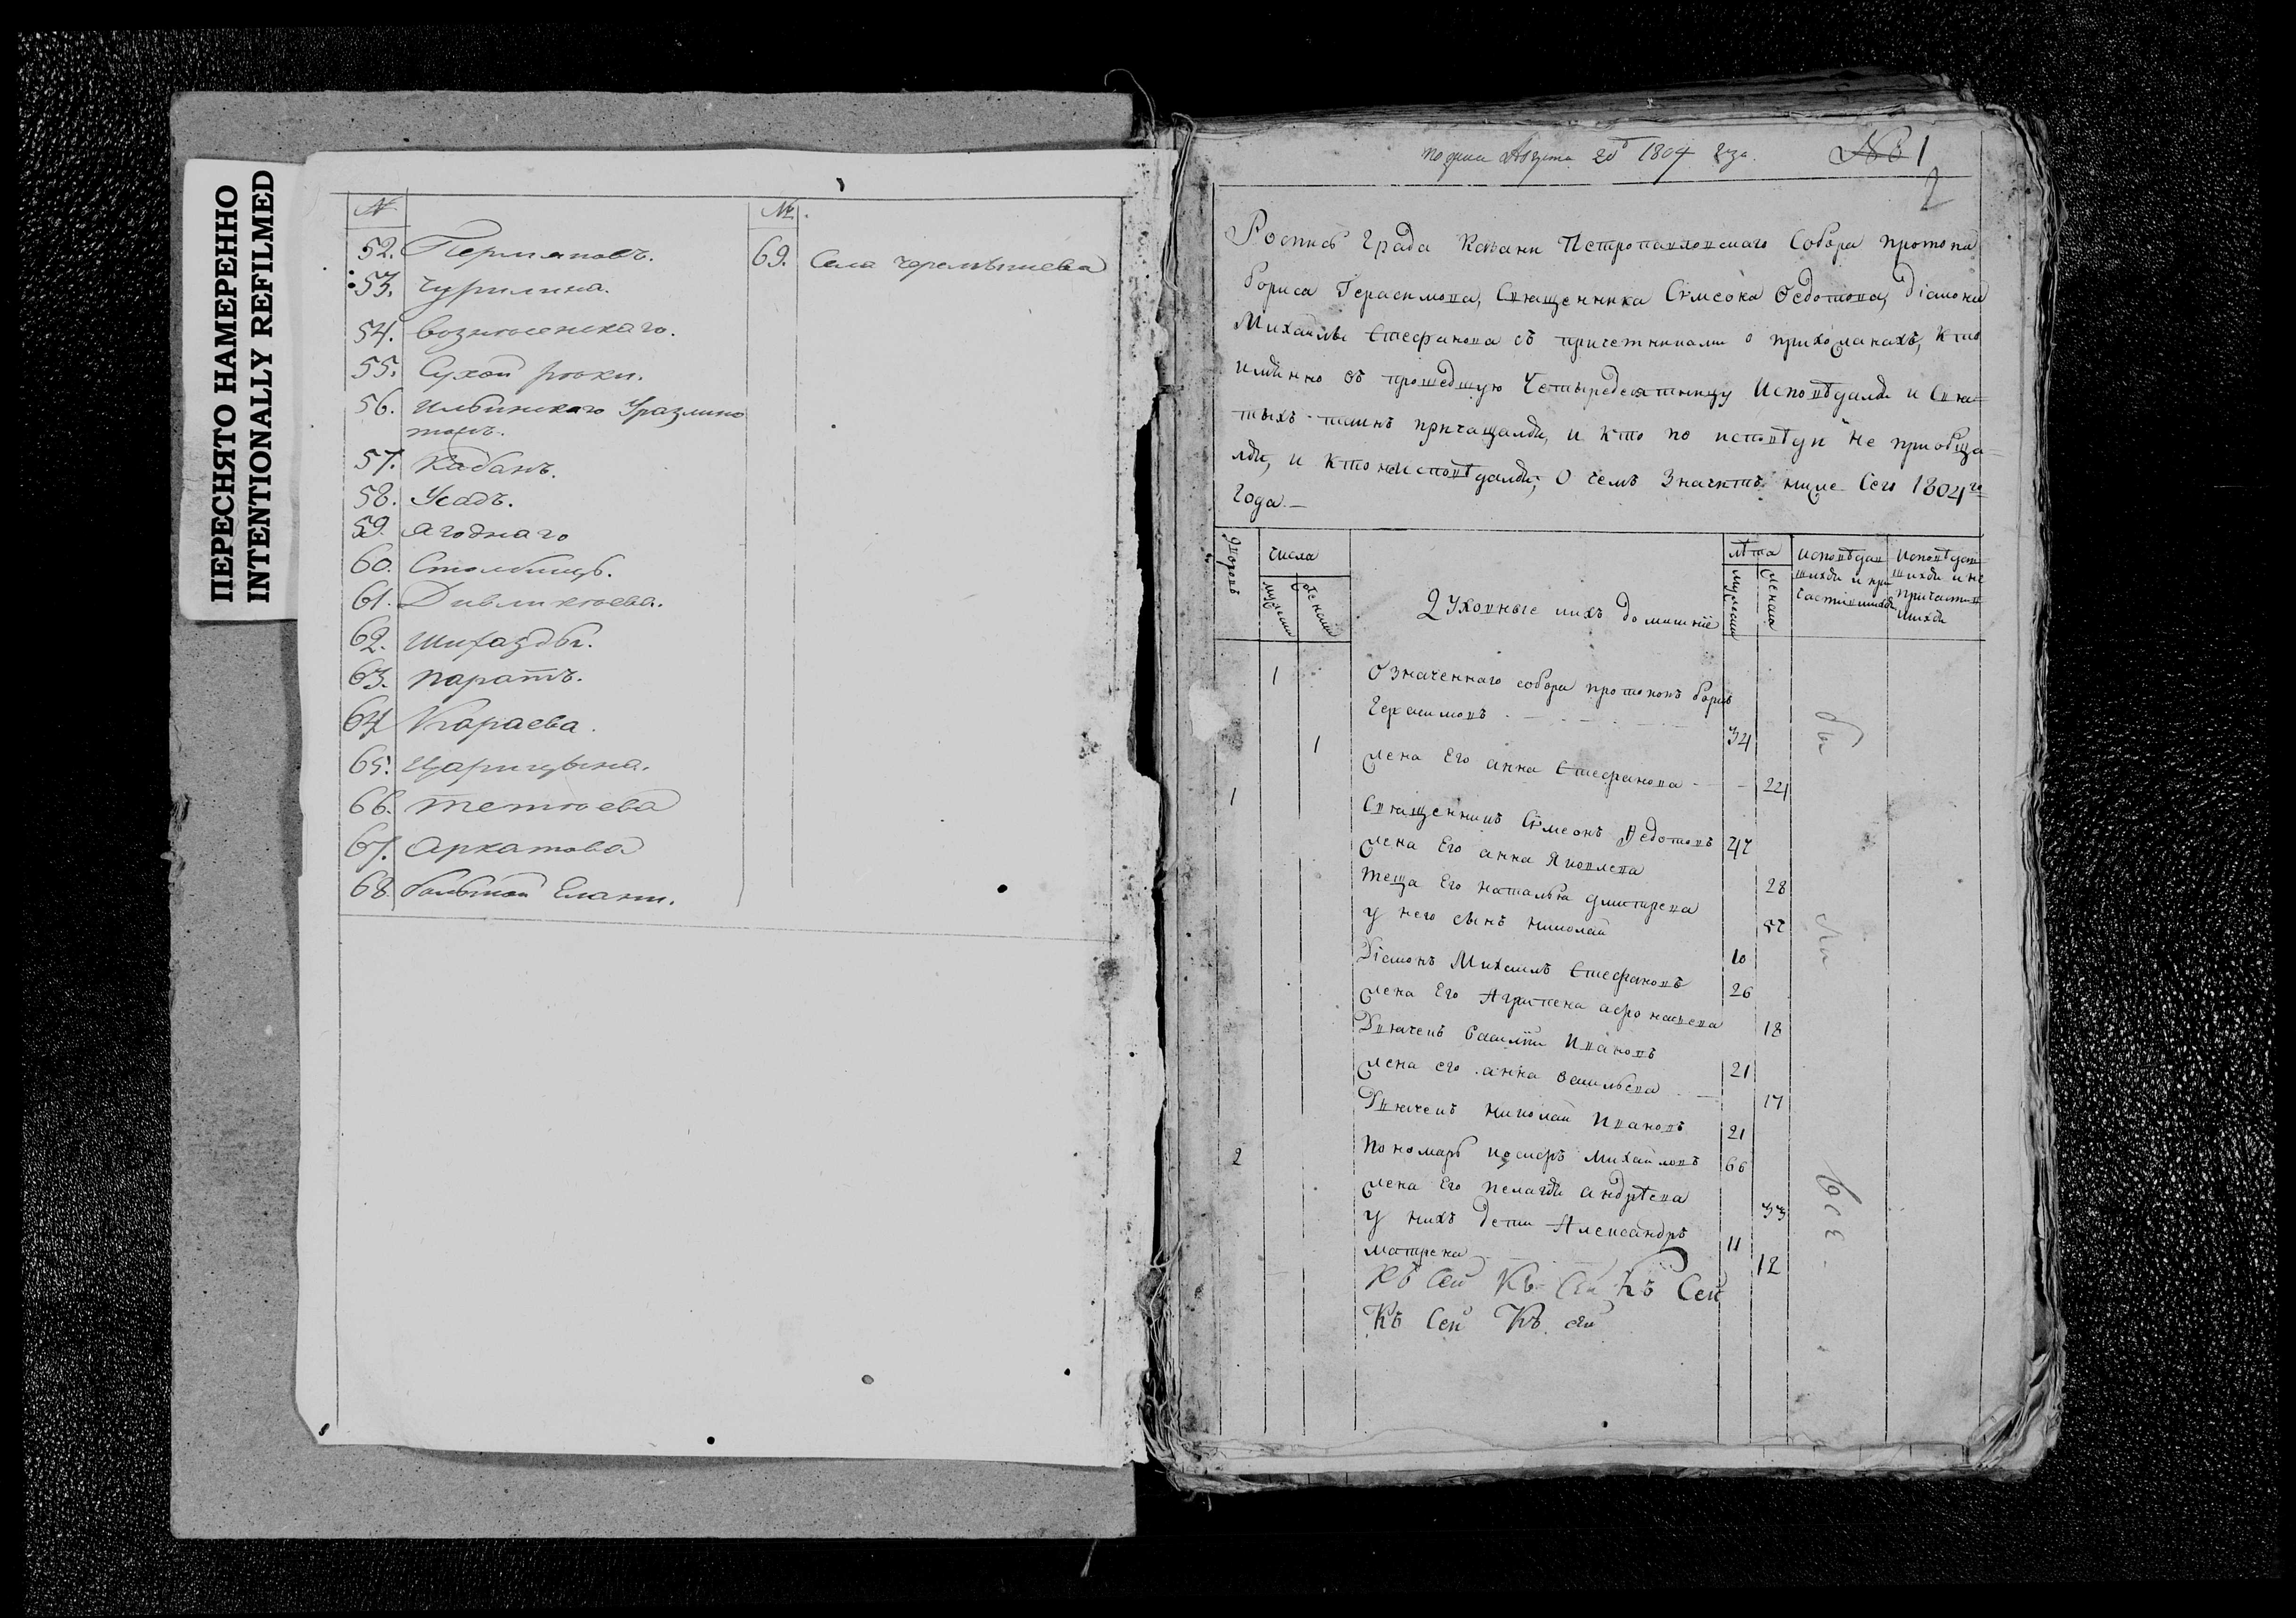 ПЕРЕСНЯТО НАМЕРЕННО
INTENTIONALLY REFILMED
№
52. Пермяковъ.
53. Чурилина.
54. Вознесенскаго.
55. Сухой рѣки.
56. Ильинскаго Уразлино
тожъ.
57. Кабанъ.
58. Усадъ.
59. Ягоднаго
60. Столбищъ.
61. Дивликеева.
62. Шигазды.
63. Паратъ.
64. Караева.
65. Царицына.
66. Тетеева
67. Аркатова
68. Большой Елани.
№.
69. Села Черемышева
Августа 20 1804 года.
№ 1
2
Роспись Града Казани Петропавловскаго Собора протопа
Бориса Герасимова, Священника Сѵмеона Ѳедотова, Діакона
Михаила Стефанова съ причетниками о прихожанахъ, кто
имянно въ прошедшую Четыредесятницу Исповѣдался и Свя=
тыхъ таинъ причащался, и кто по исповѣди не приобща=
лся, и кто не исповѣдался; О чемъ Значитъ ниже Сего 1804го
Года.
дворовъ
числа
мужеска
женска
Духовные и ихъ домашнїе
лѣта
мужеска
женска
исповѣдав
шихся и при
частившихся
исповѣдав
шихся и не
причастив
шихся
1 Означеннаго собора протопопъ Борисъ
Герасимовъ 34
1 жена Его анна Стефанова 24
1 Священникъ Сѵмеонъ Ѳедотовъ 47
жена Его анна Яковлева 28
теща Его наталья дмитрева 57
у него сынъ николай 10
Діаконъ Михаилъ Стефановъ 26
жена Его Агрипена афонасева 18
Дьячекъ Василїй Ивановъ 21
жена его анна васильева 17
Дьячекъ николай Ивановъ 21
2 Пономарь иосифъ Михайловъ 66
жена Его пелагея андрѣева 33
у нихъ дети Александръ 11
матрена 12
бы
ли
всѣ
Къ Сей Къ Сей Къ Сей
Къ Сей Къ сей